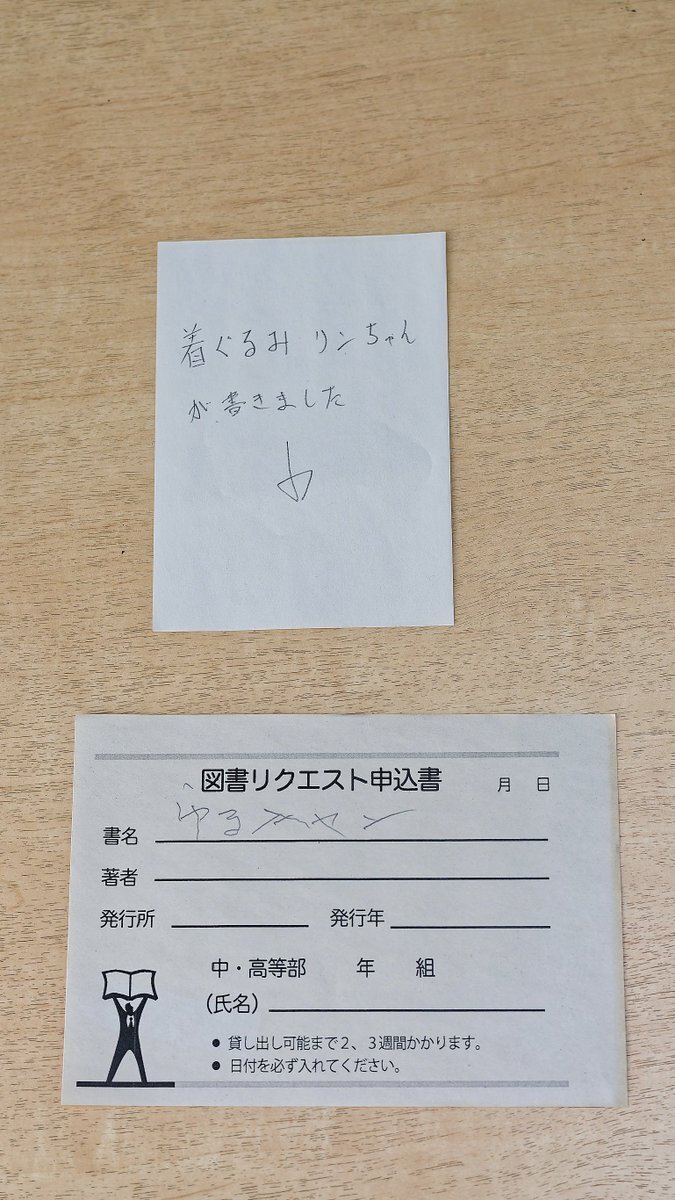 着ぐるみリンちゃん
が書きました
図書リクエスト申込書 月 日
書名 ゆるキャン
著者
発行所 発行年
中・高等部 年 組
(氏名)
● 貸し出し可能まで２、３週間かかります。
● 日付を必ず入れてください。